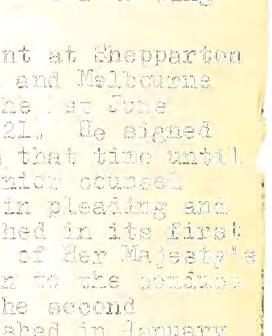 nt at Shepparton
and Melbourne
he 1st June
21. He signed
that time until
nior counsel
in pleading and
hed in its first
of Her Majesty's
n to the conduct
he second
shed in January